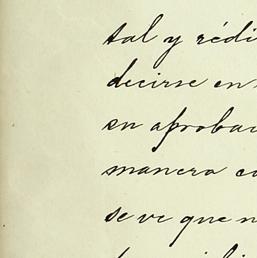 tal y rédi
decirse en
su aprobac
manera co
se ve que n